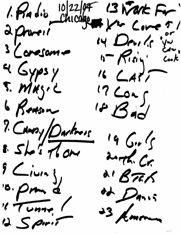 1. Radio
10/22/07
Chicago
2. prove it
3 Lonesome
4 Gypsy
5 Magic
6 Reason
7. Candy/Darkness
8. She's the One
9 Living
10. prmd
11 Tunnel
12 Spirit
13 Work For
Your Love
14 Devil's
15 - Rising
16 LAST
17 Long
18 Bad
19 Girls
21 BTR
22 Dancing
23 American